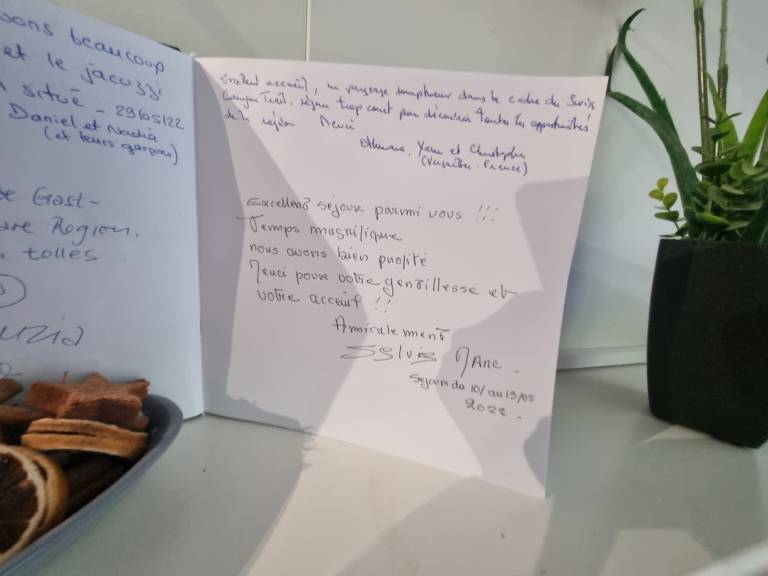 vons beaucoup
et le jacuzzi
situé - 29/05/22
Daniel et Nadia
(et leurs garçons)
Gast-
Region.
tolles
Excellent accueil, un paysage somptueux dans le cadre du Swiss
Canyon Trail, séjour trop court pour découvrir toutes les opportunités
de la région Merci
Yann et Christophe
(Versailles. France)
Excellent séjour parmi vous !!!
Temps magnifique
nous avons bien profité
Merci pour votre gentillesse et
votre acceuil !!
Amicalement
Sylvie Marc.
Séjour du 10/ au 15/05
2022.